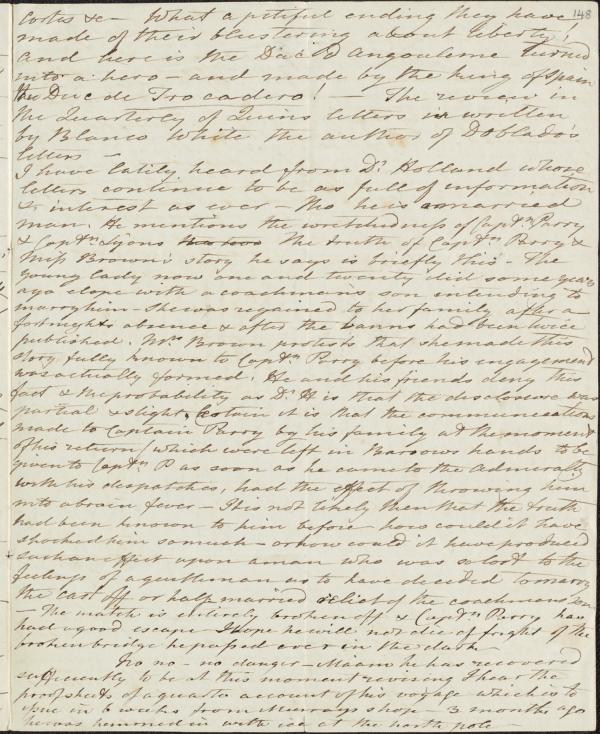 148
Cortes &c - What a pitiful ending they have
made of their blustering about liberty!
And here is the Duc d Angouleme turned
into a hero - and made by the king of Spain
the Duc de Trocadero! - The review in
the Quarterly of Quins letters is written
by Blanco White the author of Doblado's
letters -
I have lately heard from Dr Holland whose
letters continue to be as full of information
& interest as ever - tho he is a married
man. He mentions the wretchedness of Captn Parry
& Captn Lyons the truth of Captn Parry &
Miss Brown's story he says is briefly this - The
young lady now one and twenty did some years
ago elope with a coachman's son intending to
marry him - She was regained to her family after a
fortnights absence & after the banns had been twice
published. Mrs Brown protests that she made this
story fully known to Captn Parry before his engagement
was actually formed. He and his friends deny this
fact & the probability as Dr H is that the disclosure was
partial & slight, certain it is that the communication
made to Captain Parry by his family at the moment
of his return (which were left in Barrows hands to be
given to Captn P as soon as he came to the Admiralty
with his despatches, had the effect of throwing him
into a brain fever - It is not likely then that the truth
had been known to him before - how could it have
shocked him so much - or how could it have produced
such an effect upon a man who was so lost to the
feelings of a gentleman as to have decided to marry
the cast off or half married relict of the coachmans son
- The match is entirely broken off & Captn Parry has
had a good escape - I hope he will not die of fright of the
broken bridge he passed over in the dark -
No no - no danger - Maam he has recovered
sufficiently to be at this moment revising I hear the
proof sheets of a quarto account of his voyage which is to
issue in 6 weeks from Murrays shop - 3 months ago
he was hemmed in with ice at the north pole -